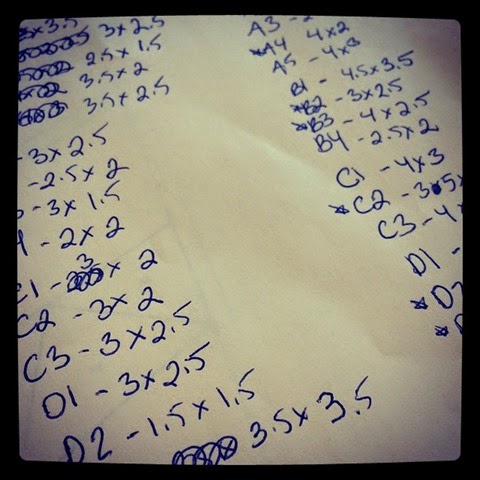 3x3.5
3x2.5
2.5x1.5
3.5x2
3.5x2.5
-3x2.5
-2.5x2
-3x1.5
-2x2
C1 - 3 x 2
C2 - 3x2
C3 - 3x2.5
D1 - 3x2.5
D2 - 1.5x1.5
3.5x3.5
A3 -
*A4 4x2
A5 - 4x3
B1 - 4.5x3.5
*B2 - 3x2.5
*B3 - 4x2.5
B4 - 2.5x2
C1 - 4x3
*C2 - 3.5x
C3 - 4
D1 -
*D2
*